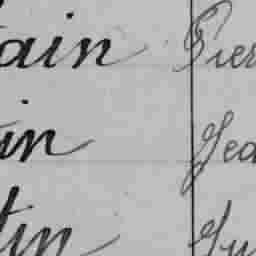 tain Pier
in Jea
tin Ju